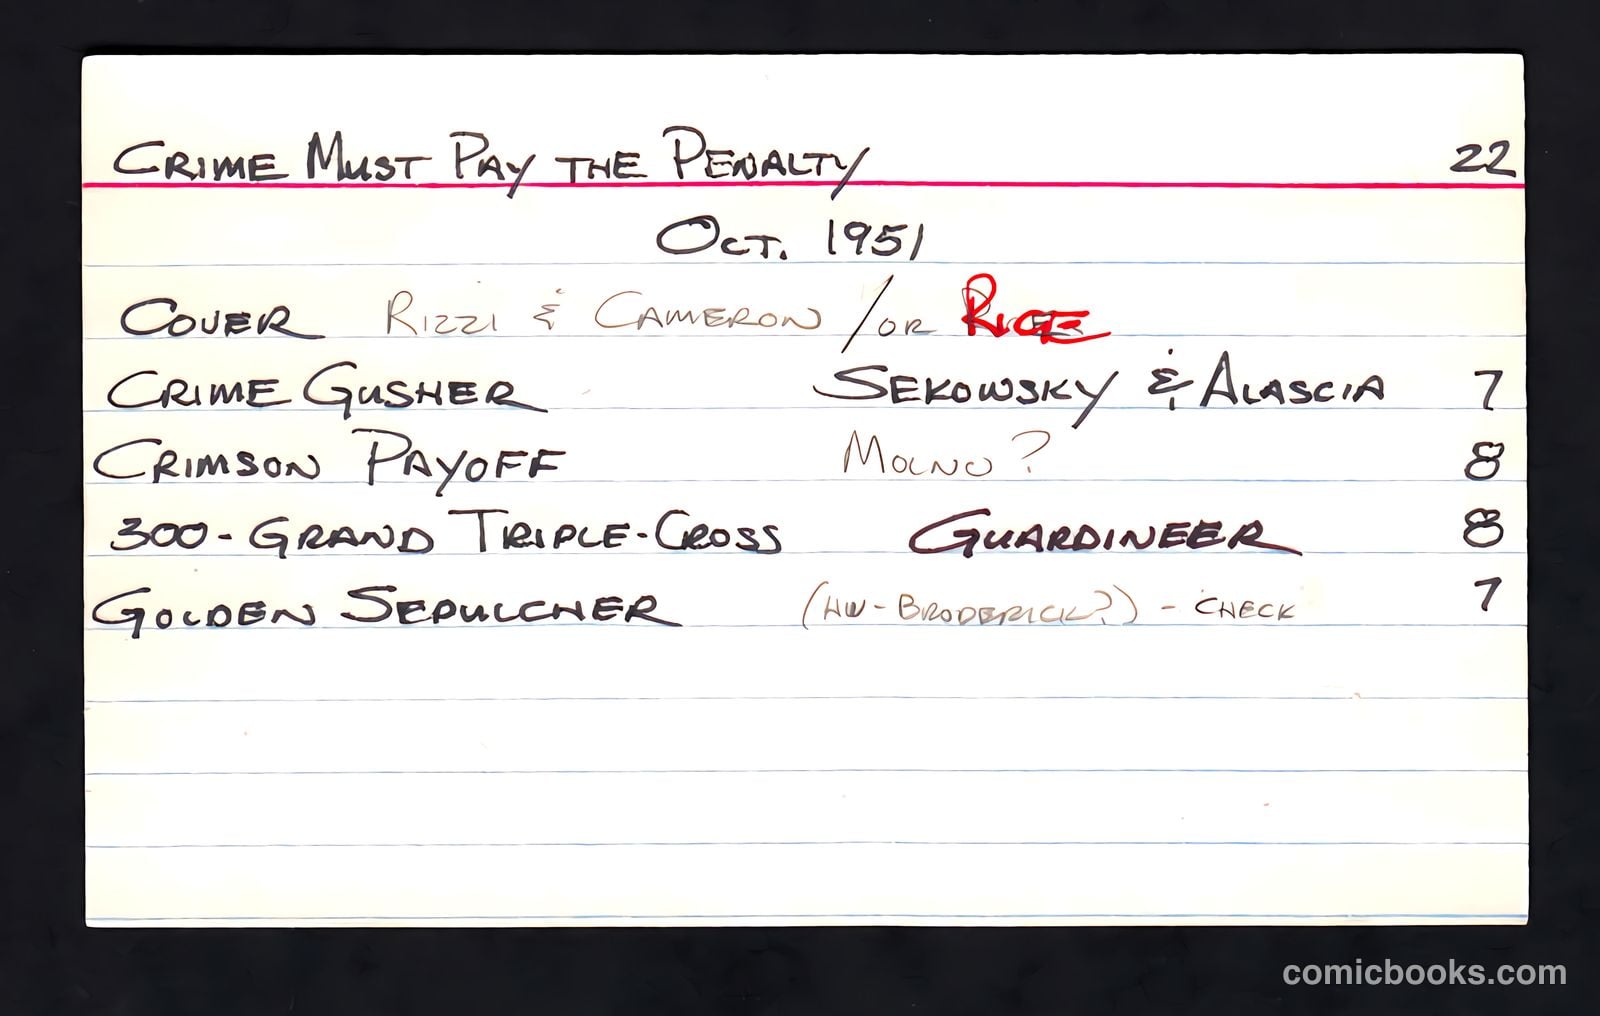 CRIME MUST PAY THE PENALTY 22
OCT. 1951
COVER RIZZI & CAMERON / OR RICE
CRIME GUSHER SEKOWSKY & ALASCIA 7
CRIMSON PAYOFF MOLNO ? 8
300-GRAND TRIPLE-CROSS GUARDINEER 8
GOLDEN SEPULCHER (HW-BRODERICK?) - CHECK 7
comicbooks.com